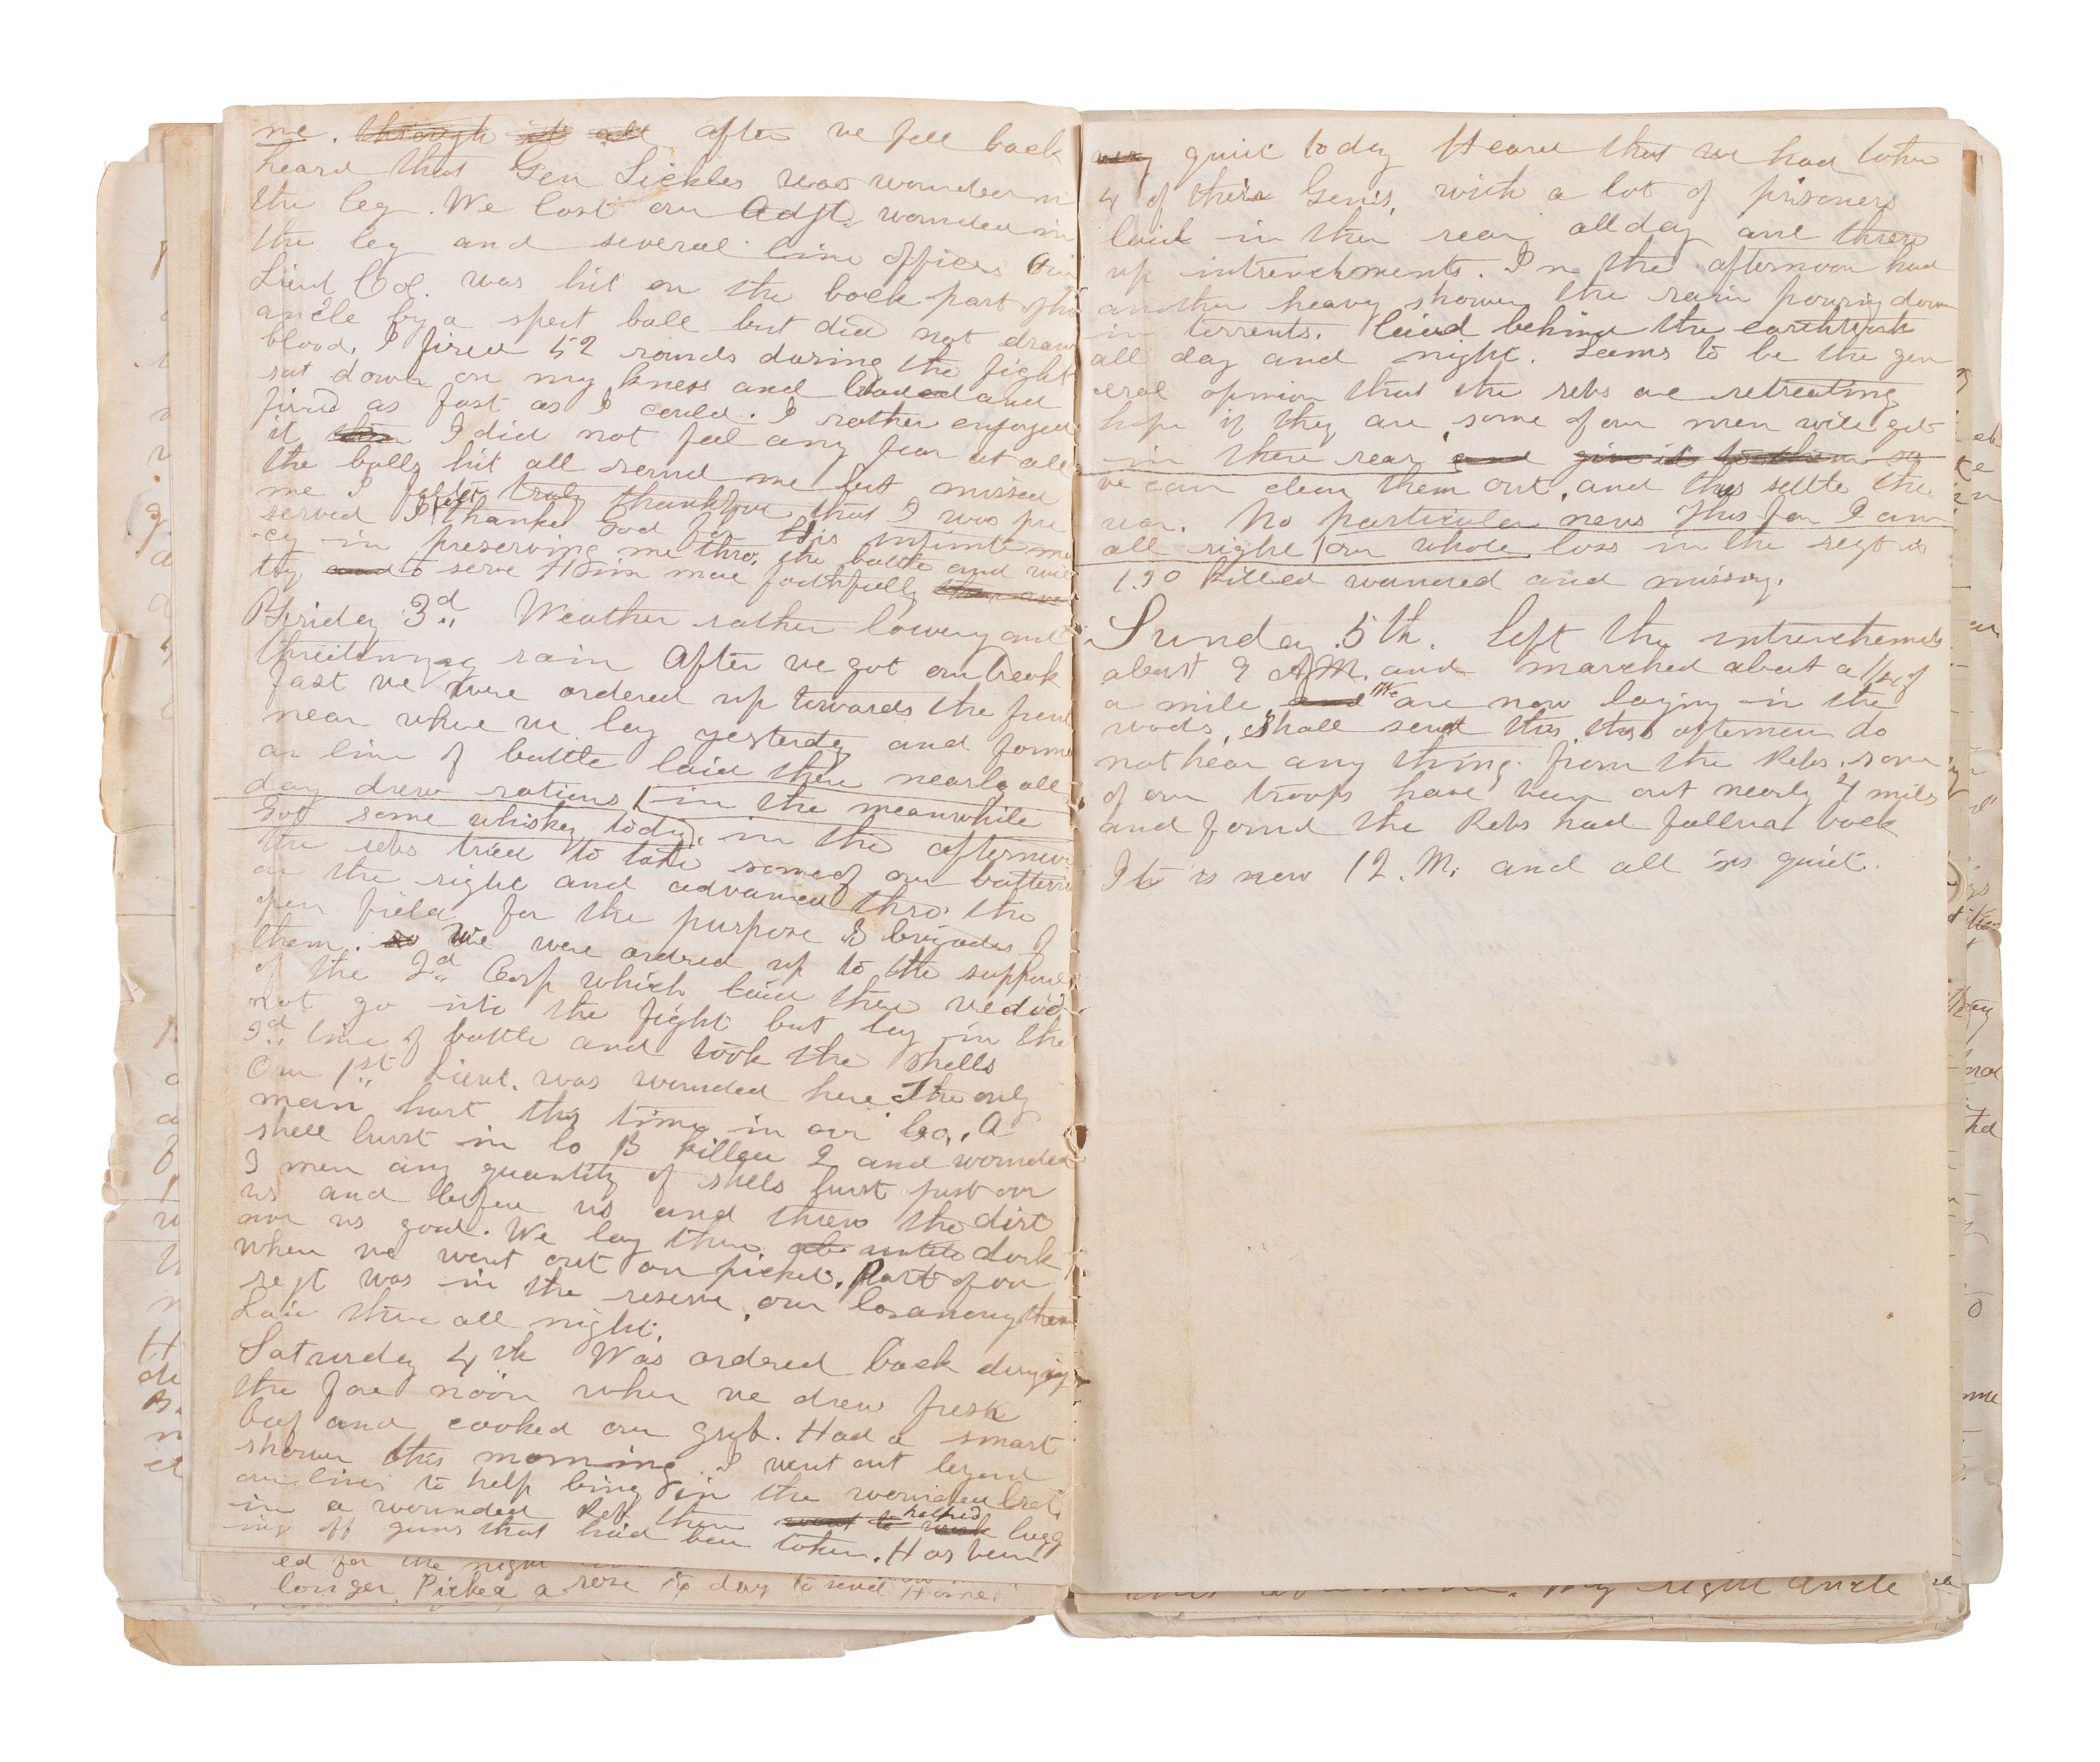 me. through it all after we fell back
heard that Gen Sickles was wounded in
the leg. We lost our Adjt. wounded in
the leg and several line officers Our
Lieut Col. was hit on the back part of his
ancle by a spent ball but did not draw
blood, I fired 52 rounds during the fight
sat down on my kness and loaded and
fired as fast as I could. I rather enjoyed
it I did not feel any fear at all
the balls hit all round me but missed
me I feel truly thankful that I was pre
served I thanked God for His infinite mer
cy in preserving me thro. the battle and will
try to serve Him more faithfully than ever
Friday 3d.. Weather rather lowery and
threitning rain After we got our break
fast we were ordered up towards the front
near where we lay yesterday and formed
our line of battle laid there nearly all
day drew rations in the meanwhile
Got some whiskey today, in the afternoon
the rebs tried to take some of our batteries
on the right and advanced thro. the
open field for the purpose 3 brigades of
them. so We were ordred up to the support
of the 2d.. Corp which laid there we did
not go into the fight but lay in the
3d.. line of battle and took the shells
Our 1st Lieut. was wounded here The only
man hurt this time in our Co., A
shell burst in Co B killed 2 and wounded
9 men any quantity of shells burst just over
us and before us and threw the dirt
over us good. We lay there until dark
when we went out on picket. Part of our
regt was in the reserve, our Co among them
Laid there all night.
Saturday 4th Was ordred back during
the fore noon when we drew fresk
beef and cooked our grub. Had a smart
shower this morning. I went out beyond
our lines to help bring in the wounded
in a wounded Reb then went to work helped lugg
ing off guns that had been taken. Has been
ed for the night
longer. Picked a rose to day to send Home.
very quiet today Heard that we had taken
4 of their Gen's, with a lot of prisoners
laid in the rear all day and threw
up intrenchments. In the afternoon had
another heavy shower the rain pouring down
in torrents. laid behind the earthwork
all day and night. Seems to be the gen
eral opinion that the rebs are retreating
hope if they are, some of our men will get
in there rear and give it to them so
we can clean them out, and thus settle the
war. No particular news Thus far I am
all right our whole loss in the regt is
130 killed wounded and missing.
Sunday. 5th. left the intrenchments
about 9 A.M. and marched about a 1/4 of
a mile and We are now laying in the
woods, Shall send this this afternoon do
not hear any thing from the Rebs. some
of our troops have been out nearly 4 miles
and found the Rebs had fallen back
It is now 12. M. and all is quiet.
My right ancle